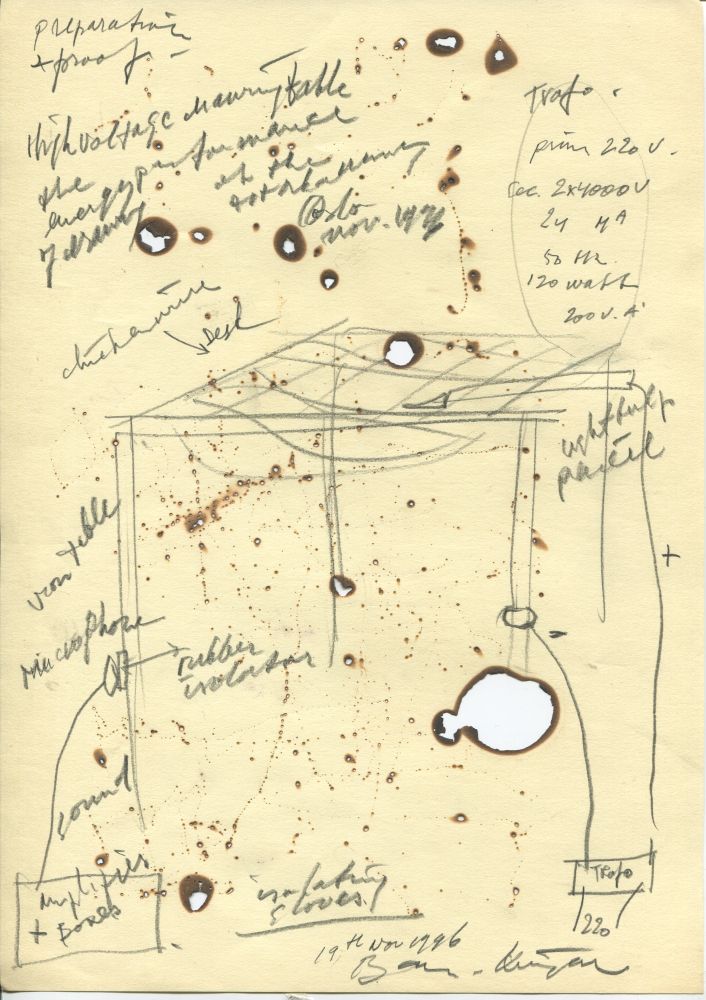 preparation
+ proof -
High voltage drawing table
the
energy performance
of drawing
at the
Oslo
nov. 1996
Trafo.
prim 220 V.
sec. 2x4000V
24 MA
50 Hz
120 watt
200 V. A
chickenwire
Desk
lightbulb
iron table
microphone
rubber
isolator
+
-
sound
amplifier
+ Boxes
isolating
gloves
Trafo
220
19th Nov 1996